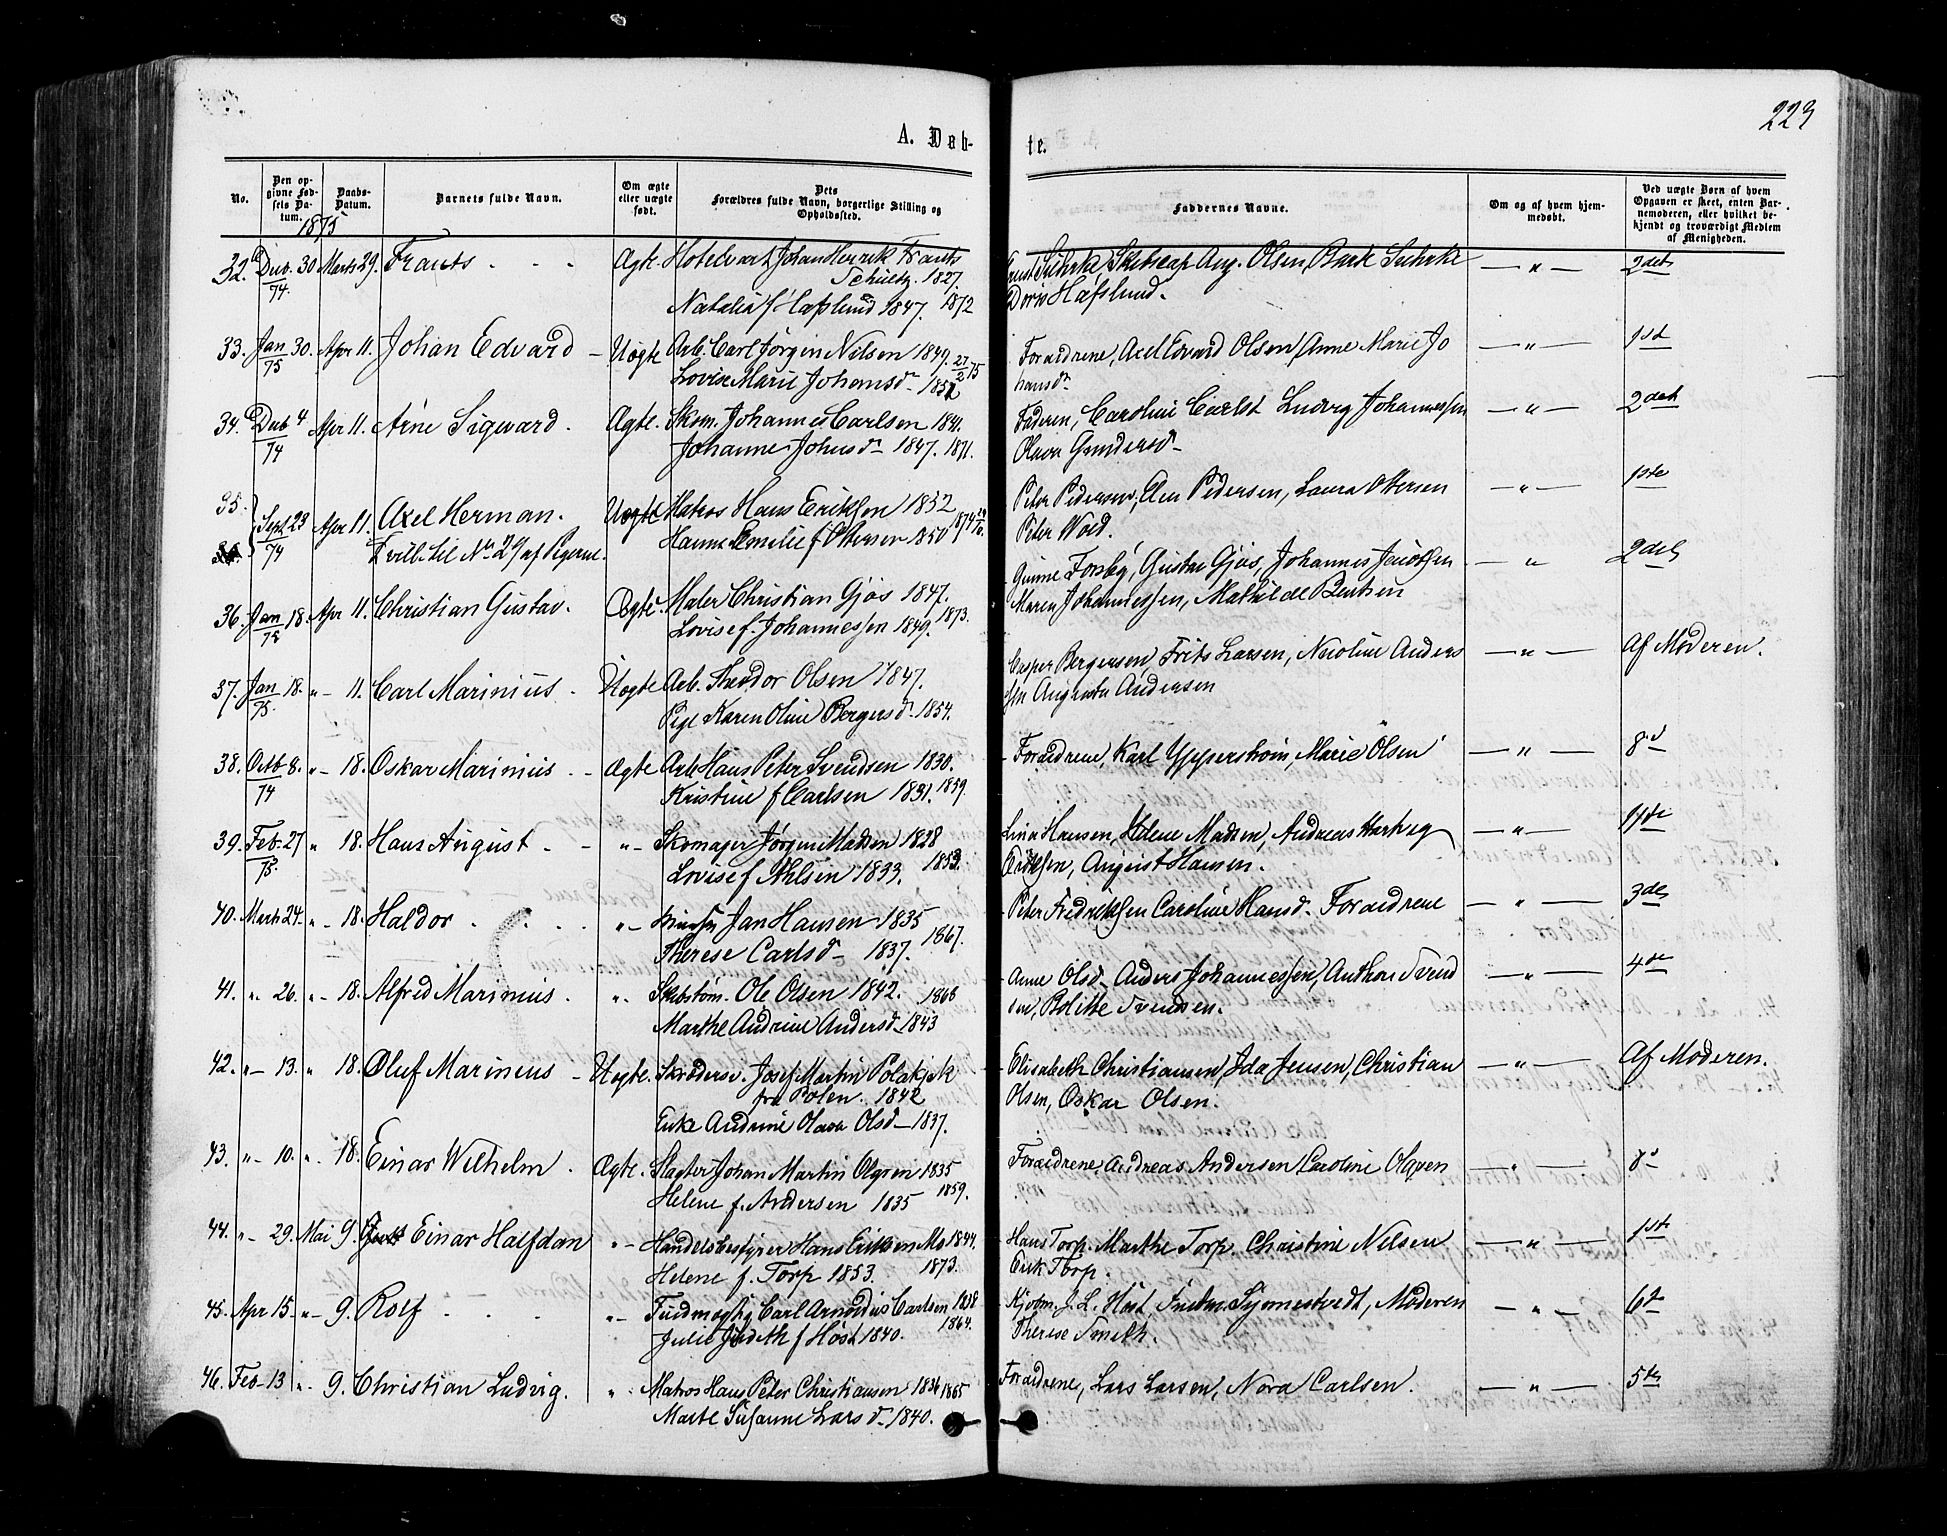 223
A. Døb-
te.
No.
Den op-
givne Fød-
sels Da-
tum.
Daabs-
Datum.
Barnets fulde Navn.
Om ægte
eller uægte
født.
Dets
Forældres fulde Navn, borgerlige Stilling og
Opholdssted.
Faddernes Navne.
Om og af hvem hjem-
medøbt.
Ved uægte Børn af hvem
Opgaven er skeet, enten Bar-
nemoderen, eller hvilket be-
kjendt og troværdigt Medlem
af Menigheden.
1875
32. 30 Marts 29. Frants Ægte Hotelvært Johan Henrik Frants
74. Schultz. 1827.
Natalia f. Hafslund 1847. 1872
Olsen
Doris Hafslund. — " — 2det
33. Jan 30. Apr 11. Johan Edvard — Uægte Arb. Carl Jørgen Nilsen 1849. 27/2 75
75 Lovise Marie Johansdr 1852
Foraldrene, Axel Edvard Olsen, Anne Marie Jo
hansdr — " — 1st
34. 4 Apr 11. Arne Sigvard. Ægte. Skom. Johannes Carlsen 1841.
74 Johanne Johnsdr 1847. 1871.
Faderen, Caroline Ludvig Johannessen
Olava Gundersd — " — 2det
35. Sept 23 Apr 11. Axel Herman. Uægte Matros Hans Eriksen 1852
74 Tvill. til No 29 af Pigerne. Hanna Emilie f. Ottersen 1850
Peter Pedersen, Pedersen, Laura Ottersen
Peter — " — 1ste
36. Jan 18. Apr 11. Christian Gustav. Ægte. Maler Christian Gjøs 1847.
75 Lovise f. Johannessen 1849. 1873.
Forsby, Gustav Gjøs, Johannes
Maren Johannessen, Mathilde — " 2det
37. Jan 18. " - 11. Carl Marinius - Uægte Arb. Theodor Olsen 1847.
75. Pige Karen Oline Bergersdr 1854.
Casper Bergersen, Frits Larsen, Nicoline Anders
sen Augusta Andersen — " — Af Moderen.
38. Octb 8. " - 18. Oskar Marinius - Ægte Arb Hans Peter Svendsen 1830.
74 Kristine f Carlsen 1831. 1859.
Foraldrene, Karl Ypperstrøm, Marie Olsen — " — 8d
39. Feb 27 " 18. Hans August - "- Skomager Jørgen Madsen 1828
75. Lovise f. Nilsen 1833. 1853.
Lina Hansen, Helene Madsen, Andreas Hartvig
Eriksen, August Hansen. — " —
40. Marts 24. " - 18. Haldor "- Jan Hansen 1835
Therese Carlsdr 1837. 1867.
Peter Fredriksen Caroline Hansd. Foraldrene — " — 3de
41. " 26. " - 18. Alfred Marinius. " Skibstøm. Ole Olsen 1842. 1868
Marthe Andrine Andersd 1843
Anne Olsd Anders Johannessen, Anthon Svend
sen, Bolitte Svendsen. — " — 4de
42. " - 13. " 18. Oluf Marinius - Uægte. Skræddersv. Josef Martin Polakjek
fra Polen. 1842
Enke Andrine Olava Olsd 1837.
Elisabeth Christiansen, Ida Jensen, Christian
Olsen, Oskar Olsen. — " — Af Moderen.
43. " - 10. " - 18. Einar Wilhelm. Ægte. Slagter Johan Martin Olgren 1835
Helene f. Andersen 1835 1859.
Foraldrene, Andreas Andersen Caroline — " — 8d
44. " - 29. Mai 9. Einar Halfdan "- Handelsbestyrer Hans Eriksen Mo 1844.
Helene f. Torp 1853. 1873.
Hans Torp. Marthe Torp. Christine Nilsen
Erik Torp. — " — 1ste
45. Apr 15. " - 9. Rolf "- Carl Arnoldus Carlsen 1838
Julie Judith f Høst 1840. 1864.
Kjøbm. J. L. Høst, Moderen
Therese Smith. — " — 6te
46. Feb 13 " 9. Christian Ludvig. " Matros Hans Peter Christiansen 1834 1865
Marte Susanne Larsdr 1840.
Foraldrene, Lars Larsen, Nora Carlsen. — " — 5te